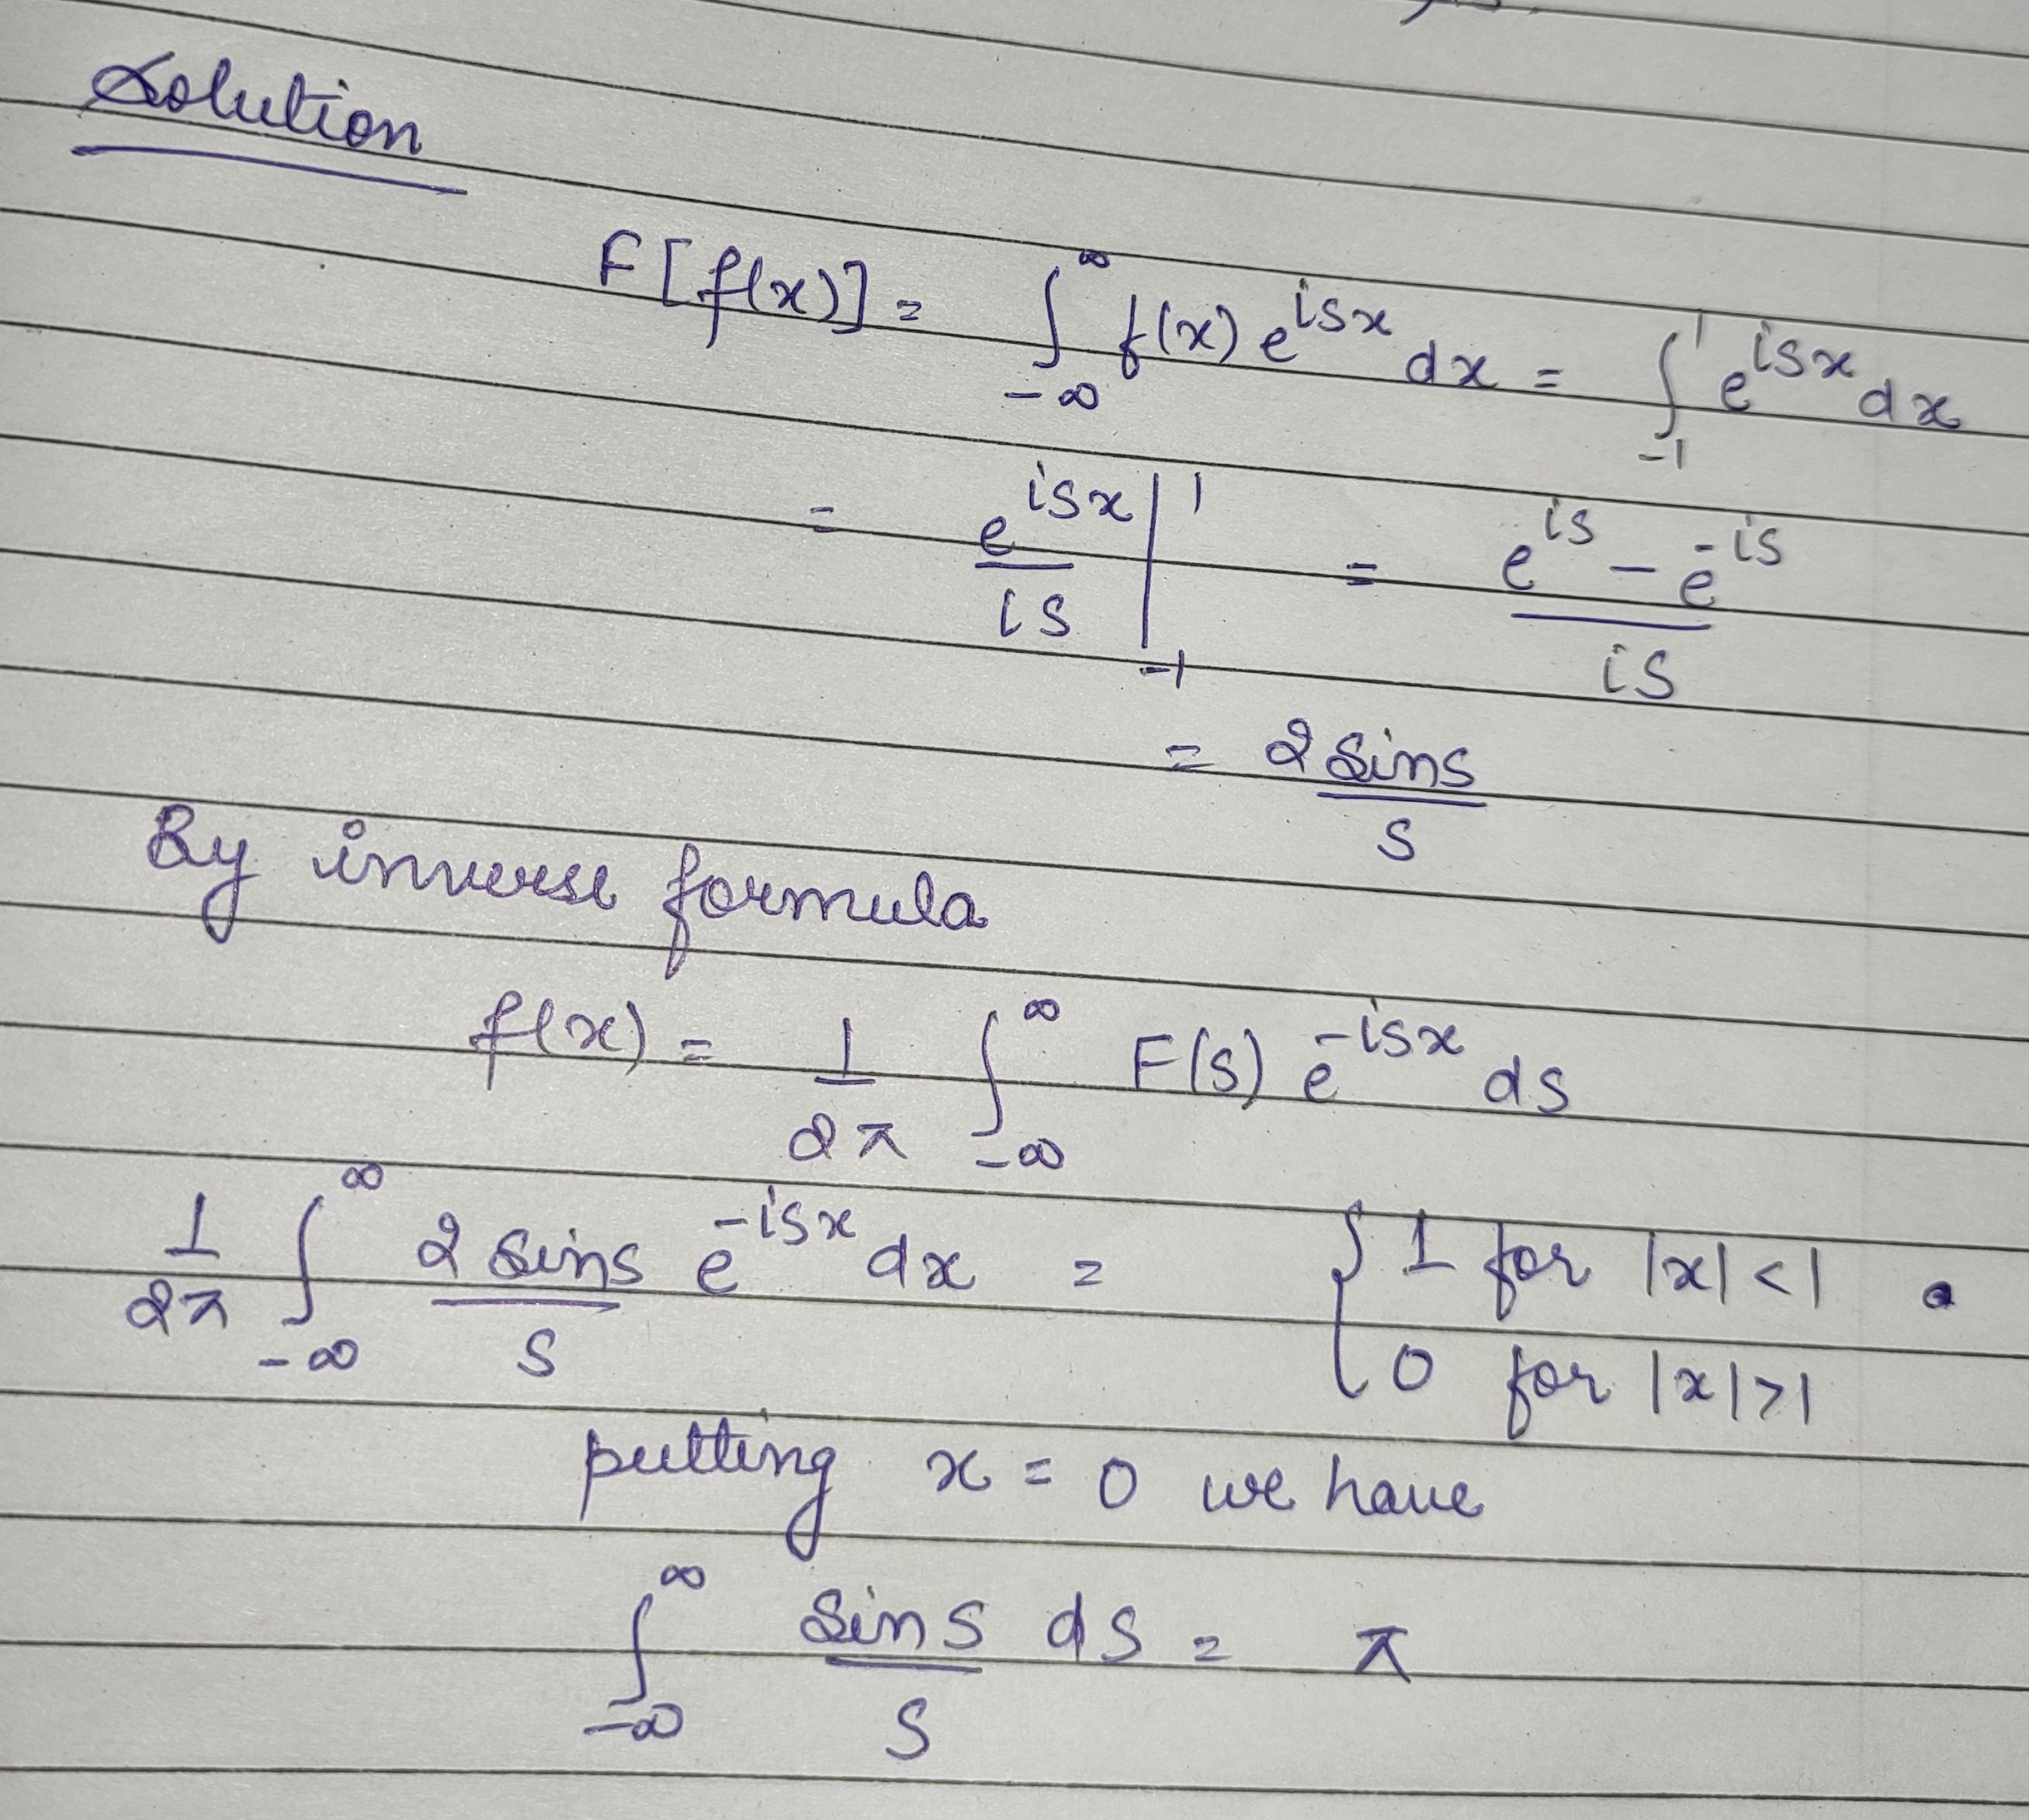 Solution
F[f(x)] = ∫_{-∞}^{∞} f(x) e^{isx} dx = ∫_{-1}^{1} e^{isx} dx
= \frac{e^{isx}}{is} |_{-1}^{1} = \frac{e^{is} - e^{-is}}{is}
= 2 \frac{sins}{s}
By inverse formula
f(x) = \frac{1}{2π} ∫_{-∞}^{∞} F(s) e^{-isx} ds
\frac{1}{2π} ∫_{-∞}^{∞} 2 \frac{sins}{s} e^{-isx} dx = { 1 for |x| < 1 .
0 for |x| > 1
putting x = 0 we have
∫_{-∞}^{∞} \frac{sins}{s} ds = π